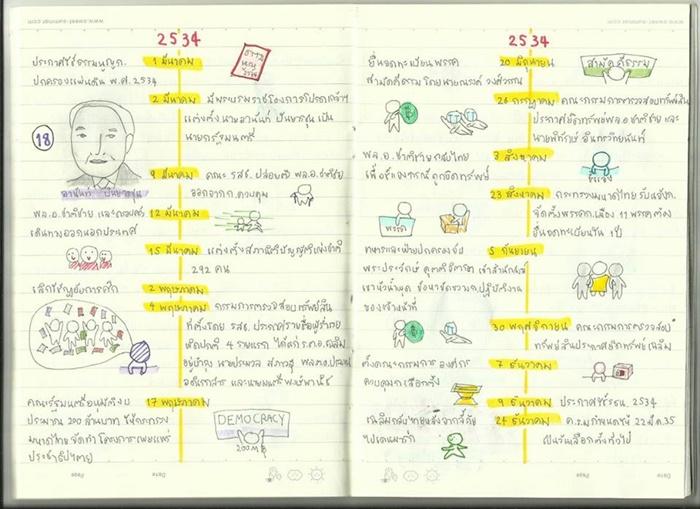 www.sweet-summer.com
2534
ประกาศใช้ธรรมนูญก.
ปกครองแผ่นดิน พ.ศ. 2534
1 มีนาคม
ธรรมนูญ
2 มีนาคม มีพระบรมราชโองการโปรดเกล้าฯ
แต่งตั้งนายอานันท์ ปันยารชุน เป็น
นายกรัฐมนตรี
18
อานันท์ ปันยารชุน
9 มีนาคม คณะ รสช. ปล่อยตัว พล.อ.ชาติชาย
ออกจากก.ควบคุม
พล.อ.ชาติชาย และครอบครัว
เดินทางออกนอกประเทศ
12 มีนาคม
15 มีนาคม แต่งตั้งสภานิติบัญญัติแห่งชาติ
292 คน
เลิกใช้กฎอัยการศึก
2 พฤษภาคม
4 พฤษภาคม กรรมการตรวจสอบทรัพย์สิน
ที่ตั้งโดย รสช. ประกาศรายชื่อผู้ร่ำรวย
ผิดปกติ 4 รายแรก ได้แก่ ร.ต.อ.เฉลิม
อยู่บำรุง นายประมวล สภาวสุ พล.ต.อ.ประมาณ
อดิเรกสาร และนายมนตรี พงษ์พานิช
คณะรัฐมนตรีอนุมัติงบ
ประมาณ 200 ล้านบาท ให้กระทรวง
มหาดไทย จัดทำโครงการเผยแพร่
ประชาธิปไตย
17 พฤษภาคม
DEMOCRACY
200 MB
Date
Page
www.sweet-summer.com
2534
ยื่นจดทะเบียนพรรค
สามัคคีธรรม โดยนายณรงค์ วงศ์วรรณ
20 มิถุนายน
สามัคคีธรรม
26 กรกฎาคม คณะกรรมการตรวจสอบทรัพย์สิน
ประกาศยึดทรัพย์พล.อ.ชาติชาย และ
นายพิทักษ์ อินทรวิทยนันท์
พล.อ.ชาติชาย กลับไทย
เพื่อร้องกรณีถูกยึดทรัพย์
3 สิงหาคม
ร้องเรียน
23 สิงหาคม กระทรวงมหาดไทย รับแจ้งก.
จัดตั้งพรรคก.เมือง 11 พรรคต้อง
ยื่นจดทะเบียนใน 1 ปี
พรรค
ทหารและฝ่ายปกครองจับ
พระประจักษ์ คุตตจิตโต เจ้าสำนักสงฆ์
เขาหัวน้ำผุด ข้อหาขัดขวางก.ปฏิบัติงาน
ของเจ้าหน้าที่
5 กันยายน
30 พฤศจิกายน คณะกรรมการตรวจสอบ
ทรัพย์สินประกาศยึดทรัพย์เฉลิม
ตั้งคณะกรรมการ องค์กร
ควบคุมก.เลือกตั้ง
7 ธันวาคม
9 ธันวาคม ประกาศใช้รธน. 2534
เฉลิมกลับไทยหลังจากลี้ภัย
ไปเดนมาร์ก
24 ธันวาคม ค.ร.ม. กำหนดให้ 22 มี.ค. 35
เป็นวันเลือกตั้งทั่วไป
Date
Page